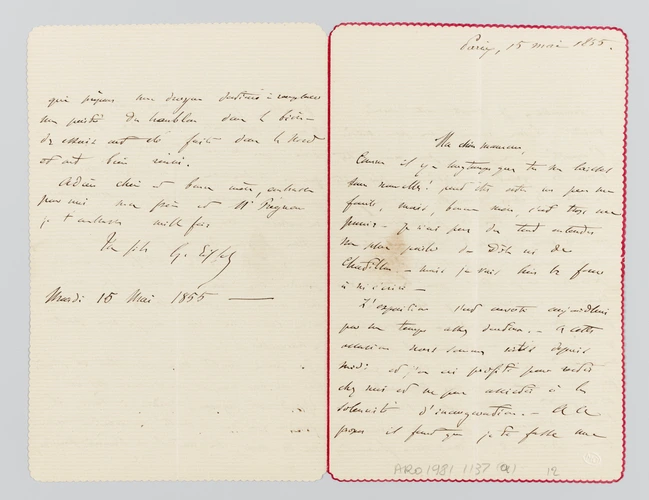 qui prépare une drogue destinée à remplacer
une partie du houblon dans la bière –
des essais ont été faits dans le Nord
et ont bien réussi.
Adieu chère et bonne mère, embrasse
pour moi mon père et Mr
je t'embrasse mille fois
Ton fils G. Eiffel
Mardi 15 Mai 1855 —
Paris, 15 mai 1855.
Ma chère maman,
Comme il y a longtemps que tu me laisses
sans nouvelles! peut être est-ce un peu ma
faute, mais, bonne mère, c'est trop me
punir – je n'ai pas du tout entendu
non plus parler de Dijon ni de
Châtillon – mais je vais bien les forcer
à m'écrire –
L'exposition s'est ouverte aujourd'hui
par un temps assez douteux. – A cette
occasion nous sommes libres depuis
midi et j'en ai profité pour rester
chez moi et ne pas assister à la
solennité d'inauguration. – A ce
propos il faut que je te fasse une
ARO 1981 1137 (a) 12